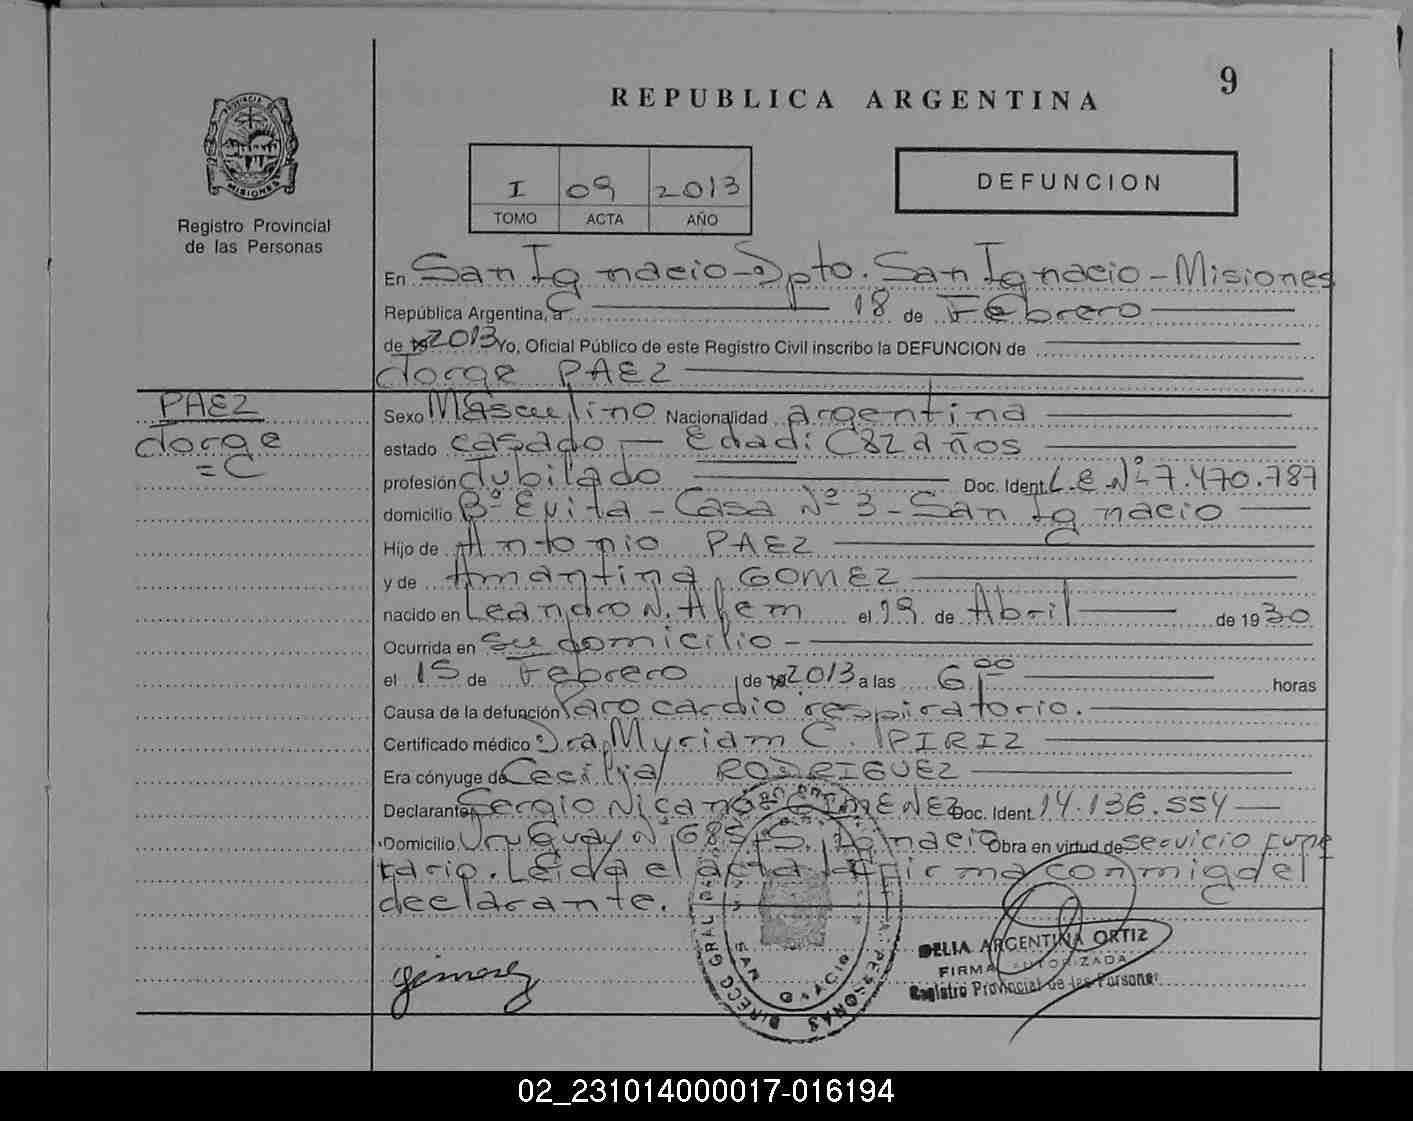 9
REPUBLICA ARGENTINA
PROVINCIA DE
MISIONES
Registro Provincial
de las Personas
I 09 2013
TOMO ACTA AÑO
DEFUNCION
En San Ignacio - Dpto. San Ignacio - Misiones
República Argentina, a 18 de Febrero
de 19 2013 Yo, Oficial Público de este Registro Civil inscribo la DEFUNCION de
Jorge PAEZ
PAEZ
Jorge
=C
Sexo Masculino Nacionalidad argentina
estado casado - Edad: (82 años
profesión Jubilado Doc. Ident. L.E Nº 7.470.787
domicilio Bº Evita - Casa Nº 3 - San Ignacio
Hijo de Antonio PAEZ
y de Amantina GOMEZ
nacido en Leandro N. Alem el 19 de Abril de 1930
Ocurrida en su domicilio -
el 15 de Febrero de 19 2013 a las 6,00 horas
Causa de la defunción Paro cardio respiratorio.
Certificado médico Dra. Myriam C. PIRIZ
Era cónyuge de Cecilia RODRIGUEZ
Declarante Sergio Nicanor GIMENEZ Doc. Ident. 14.136.554
Domicilio Uruguay Nº 685 - S. Ignacio Obra en virtud de servicio fune
rario. Leida el acta la firma conmigo el
declarante.
DELIA ARGENTINA ORTIZ
FIRMA AUTORIZADA
Registro Provincial de las Personas
DIRECC GRAL PERSONAS
SAN IGNACIO
Gimenez
02_231014000017-016194